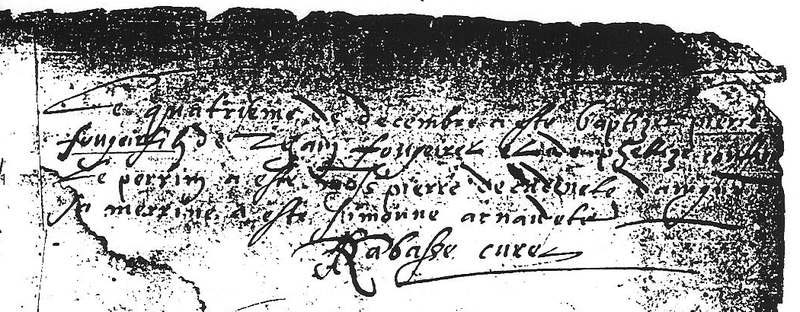 Le quatrieme de decembre a este baptizet pierre
fougeir filz de Jehan fougeiret et
Le perrin a este mos pierre de
Sa merrine a este simonne arnauete
Rabasse curet